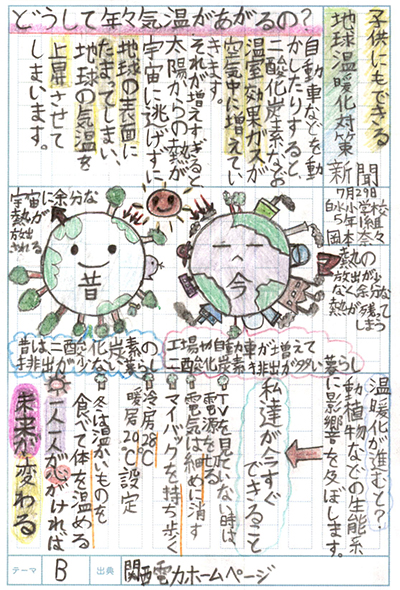 子供にもできる
地球温暖化対策
新聞
7月29日
白水小学校
5年1組
岡本奈々
どうして年々気温があがるの?
自動車などを動
かしたりすると、
二酸化炭素などの
温室効果ガスが
空気中に増えてい
きます。
それが増えすぎると
太陽からの熱が
宇宙に逃げずに
地球の表面に
たまってしまい、
地球の気温を
上昇させて
しまいます。
宇宙に余分な
熱が
放出
される
昔
今
熱の
放出が少
なく余分な
熱が残って
しまう
昔は二酸化炭素の
排出が少ない暮らし
工場や自動車が増えて
二酸化炭素排出が多い暮らし
温暖化が進むと?
動植物などの生態系
に影響を及ぼします。
私達が今すぐ
できること
TVを見ていない時は、
電源を切る
電気は細めに消す
マイバックを持ち歩く
冷房28℃
暖房20℃設定
冬は温かいものを
食べて体を温める
一人一人が心がければ
未来が変わる
テーマ B 出典 関西電力ホームページ